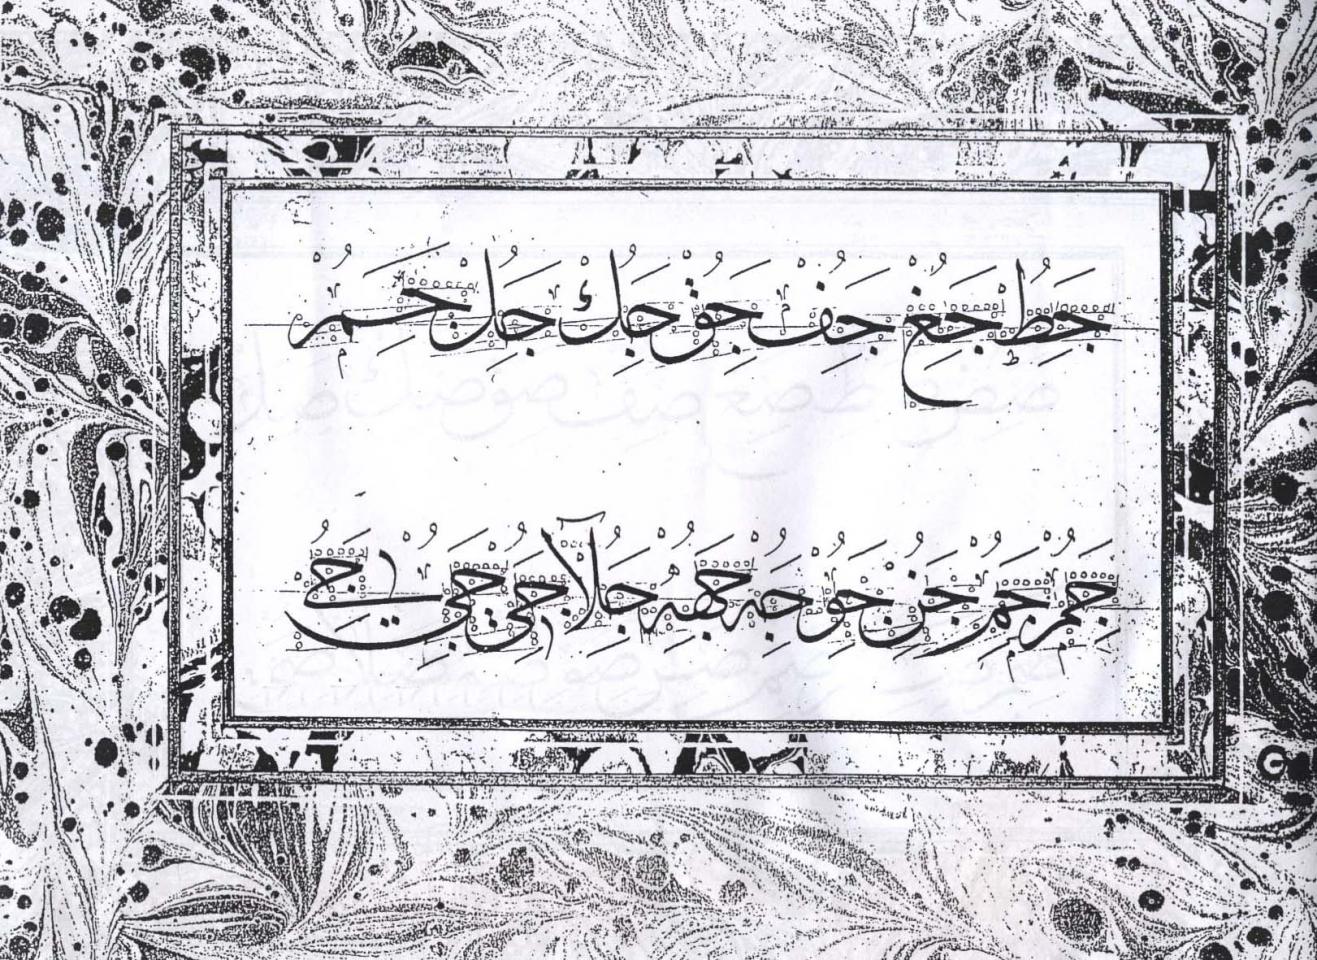 جط جغ جف جق جك جل جم
جم جم جن جو جه جهه جلا جى جي جي